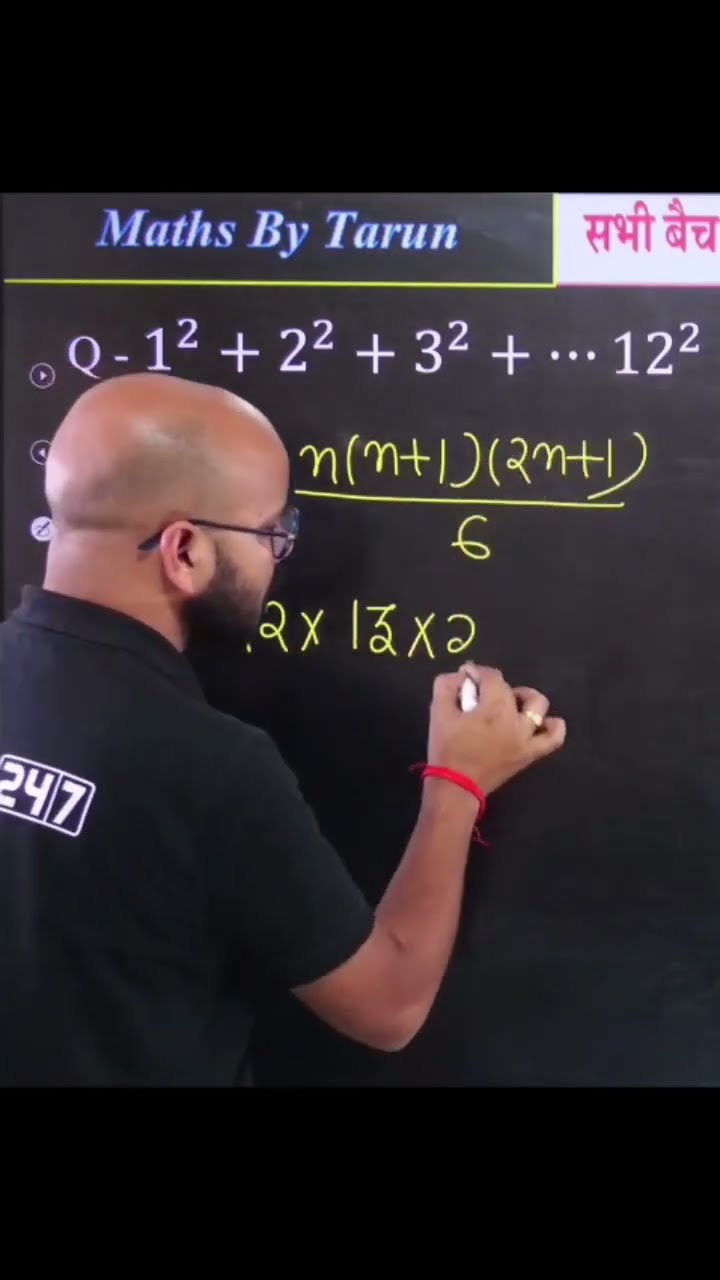 Maths By Tarun
सभी बैच
Q - 1² + 2² + 3² + ⋯ 12²
n(n+1)(2n+1)
6
2 x 13 x 2
247